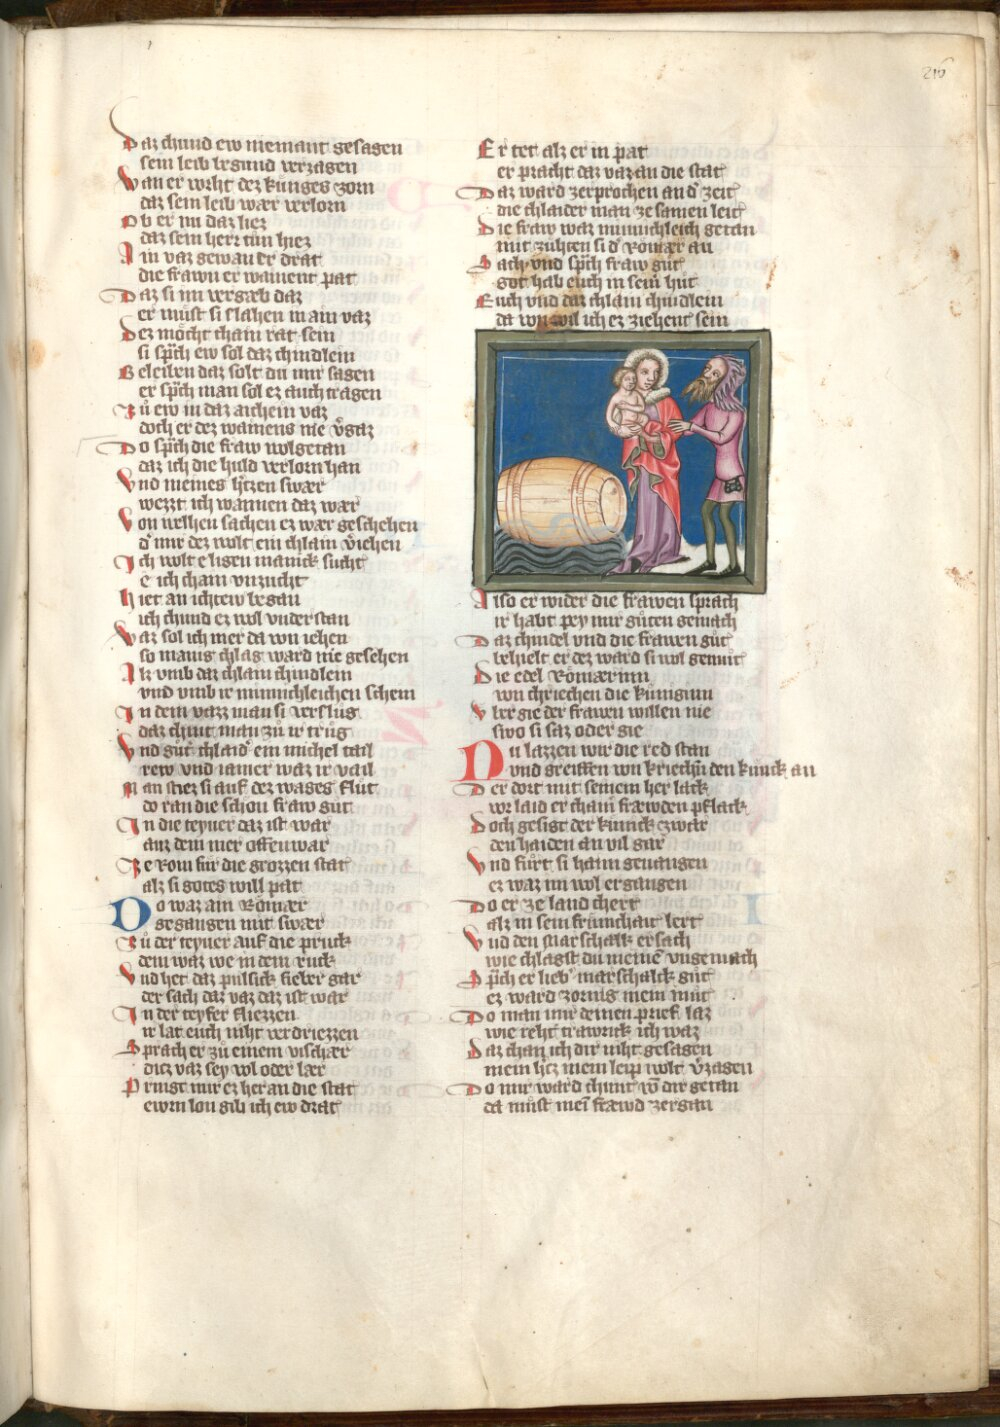 216
Daz chund ew niemant gesagen
sein leib begund verzagen
Wan er vorht dez kuniges zorn
daz sein leib wær verlorn
Ob er nu daz liez
daz sein herr tun hiez
Ain vaz gewan er drat
die frawn er wainent pat
Daz si im vergæb daz
er must si slahen in ain vaz
Dez moht chain rat sein
si sp̄ch ew sol daz chindlein
Beleiben daz solt du mir sagen
er sp̄ch man sol ez auch tragen
Zů ew in daz aichein vaz
doch er dez wainens nie v̓gaz
Do sp̄ch die fraw wolgetan
daz ich die huld verlorn han
Vnd meines h̓tzen swær
wezzt ich wannen daz wær
Von welhen sachen ez wær geschehen
d̓ mir dez wolt ein chlain v̓iehen
Ich wolt e ligen manick sucht
e ich cham vnzucht
Hiet an ichtew began
ich chund ez wol vnderstan
Waz sol ich mer da von iehen
so manig chlag ward nie gesehen
Als vmb daz chlain chindlein
vnd vmb ir minnichleichen schein
In dem vazz man si verslug
daz chint man zů ir trůg
Vnd gůt chlaid̓ ein michel tail
rew vnd iamer waz ir vail
Man stiez si auf dez wages flut
do ran die schon fraw gut
In die teyuer daz ist war
auz dem mer offenwar
Ze Rom für die grozzen stat
alz si gotes will pat
Do waz ain Romær
gegangen mit swær
Zů der teyuer auf die pruck
dem waz we in dem ruck
Vnd het daz pulsick fieber gar
der sach daz vaz daz ist war
In der teyfer fliezzen
ir lat euch niht verdriezzen
Sprach er zů einem vischær
ditz vaz sey vol oder lær
Pringt mir ez her an die stat
ewrn lon gib ich ew drat
Er tet alz er in pat
er pracht daz vaz an die stat
Daz ward zerprochen an d̓ zeit
die chlaider man ze samen leit
Die fraw waz minnichleich getan
mit zühten si d̓ Romær an
Sach vnd sp̄ch fraw gůt
got hab euch in seiner hůt
Euch vnd daz chlain chindlein
da von wil ich ez ziehent sein
Also er wider die frawen sprach
ir habt pey mir gůten gemach
Daz chindel vnd die frawen gůt
behielt er dez ward si wol gemůt
Die edel Romærinn
von chriechen die kuniginn
Vbergie der frawen willen nie
swo si saz oder gie
Nu lazzen wir die red stan
vnd greiffen von kriechn̄ den kunick an
Der dort mit seinem her lack
vor laid er chain fræwden pflack
Doch gesigt der kunick zwar
den haiden an vil gar
Vnd fůrt si haim geuangen
ez waz im wol ergangen
Do er ze land chert
alz in sein frünchaut lert
Vnd den marschalk ersach
wie chlagst du meinē vngemach
Sp̄ch er lieb̓ marschalck gůt
ez ward zornig mein můt
Do man mir deinen prief laz
wie reht trawrick ich waz
Daz chan ich dir niht gesagen
mein h̓tz mein leip wolt v̓zagen
Do mir ward chunt võ dir getan
da můst mei͂ fræwd zergan